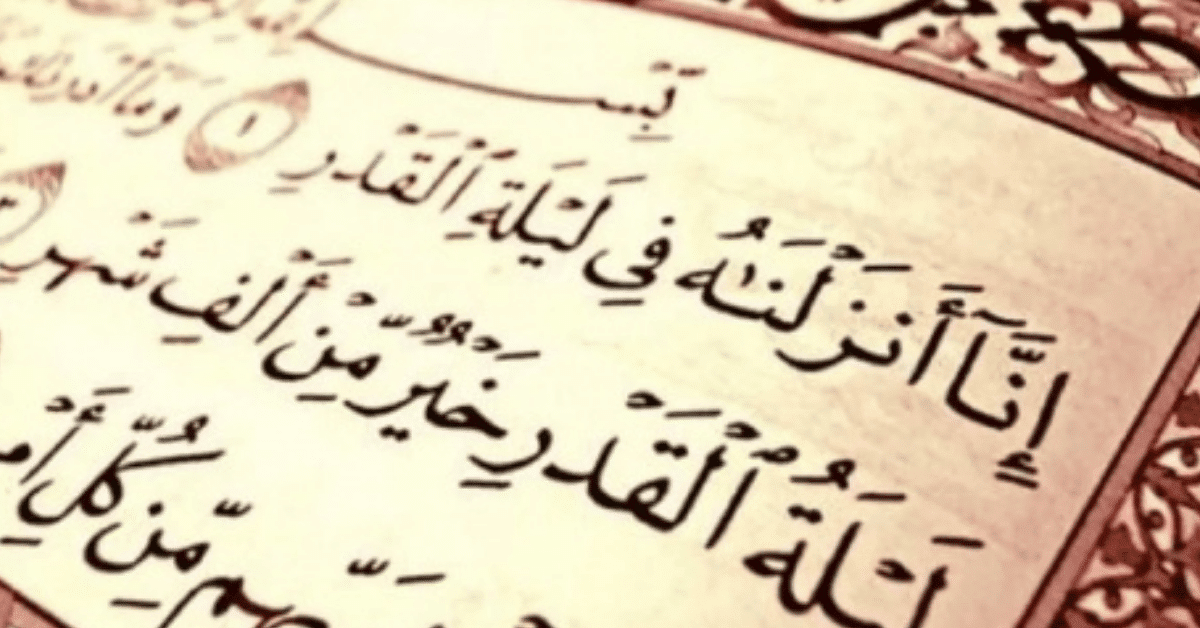 بِسْ
إِنَّآ أَنزَلْنَٰهُ فِى لَيْلَةِ ٱلْقَدْرِ ١ وَمَآ أَدْرَىٰكَ
لَيْلَةُ ٱلْقَدْرِ خَيْرٌ مِّنْ أَلْفِ شَهْرٍ
مِّن كُلِّ أَمْ